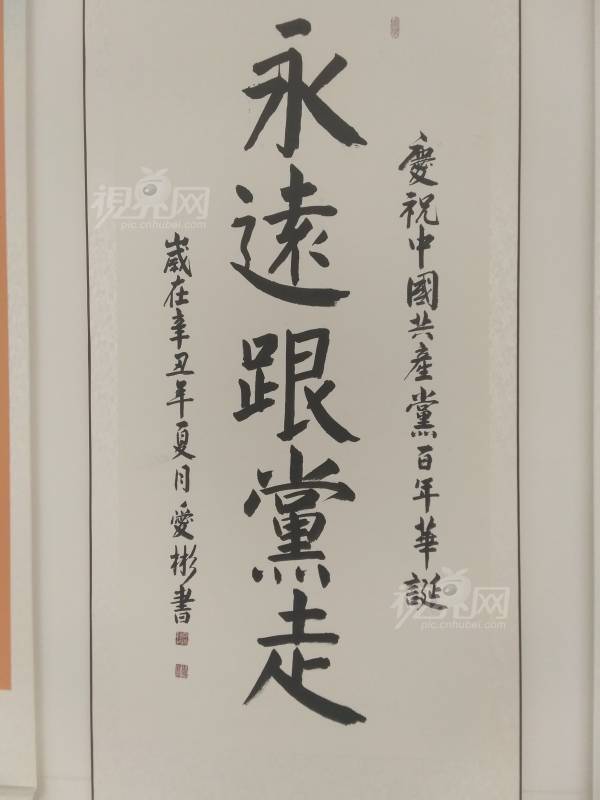 慶祝中國共產黨百年華誕
永遠跟黨走
歲在辛丑年夏月愛彬書
視界网
pic.cnhubei.com
視界网
pic.cnhubei.com